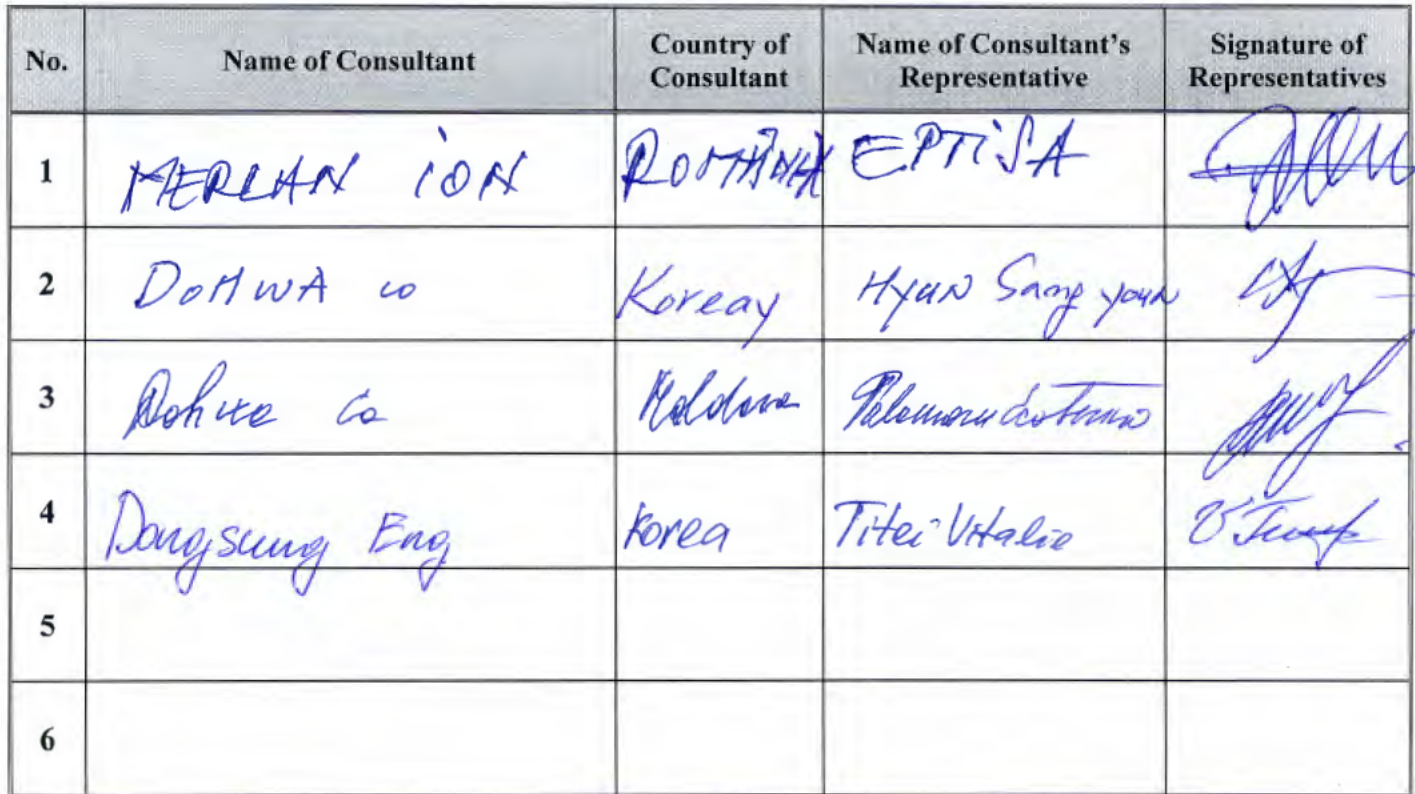 No. Name of Consultant Country of Consultant Name of Consultant's Representative Signature of Representatives
1 MERLAN ION ROMÂNIA EPTISA
2 DOHWA co Koreay Hyun Sang youn
3 Dohwa Co Moldova
4 Dongsung Eng Korea Titei Vitalie
5
6